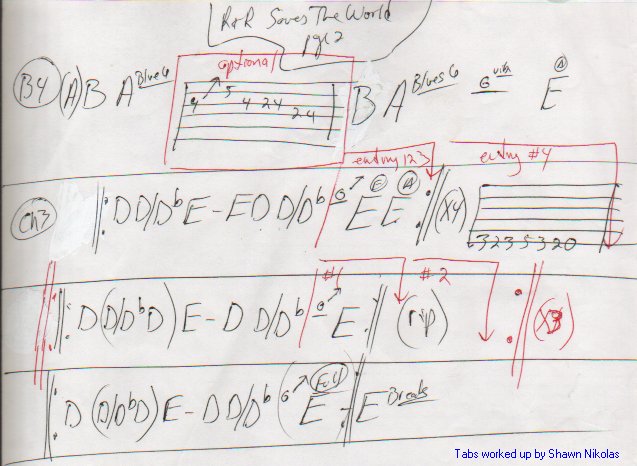 R&R Saves The World
pg 2
optional
B4 (A) B A Blues6 9 5 4 24 24 B A Blues6 G vibr E A
ending 123 ending #4
Ch3 ||: D D/Db E - E D D/Db G E E E A :|| (X4) 3 2 3 5 3 2 0
#1 #2
||: D (D/Db D) E - D D/Db G E :|| (rep) :|| (X3)
||: D (D/Db D) E - D D/Db (G E :|| E Breaks
Tabs worked up by Shawn Nikolas